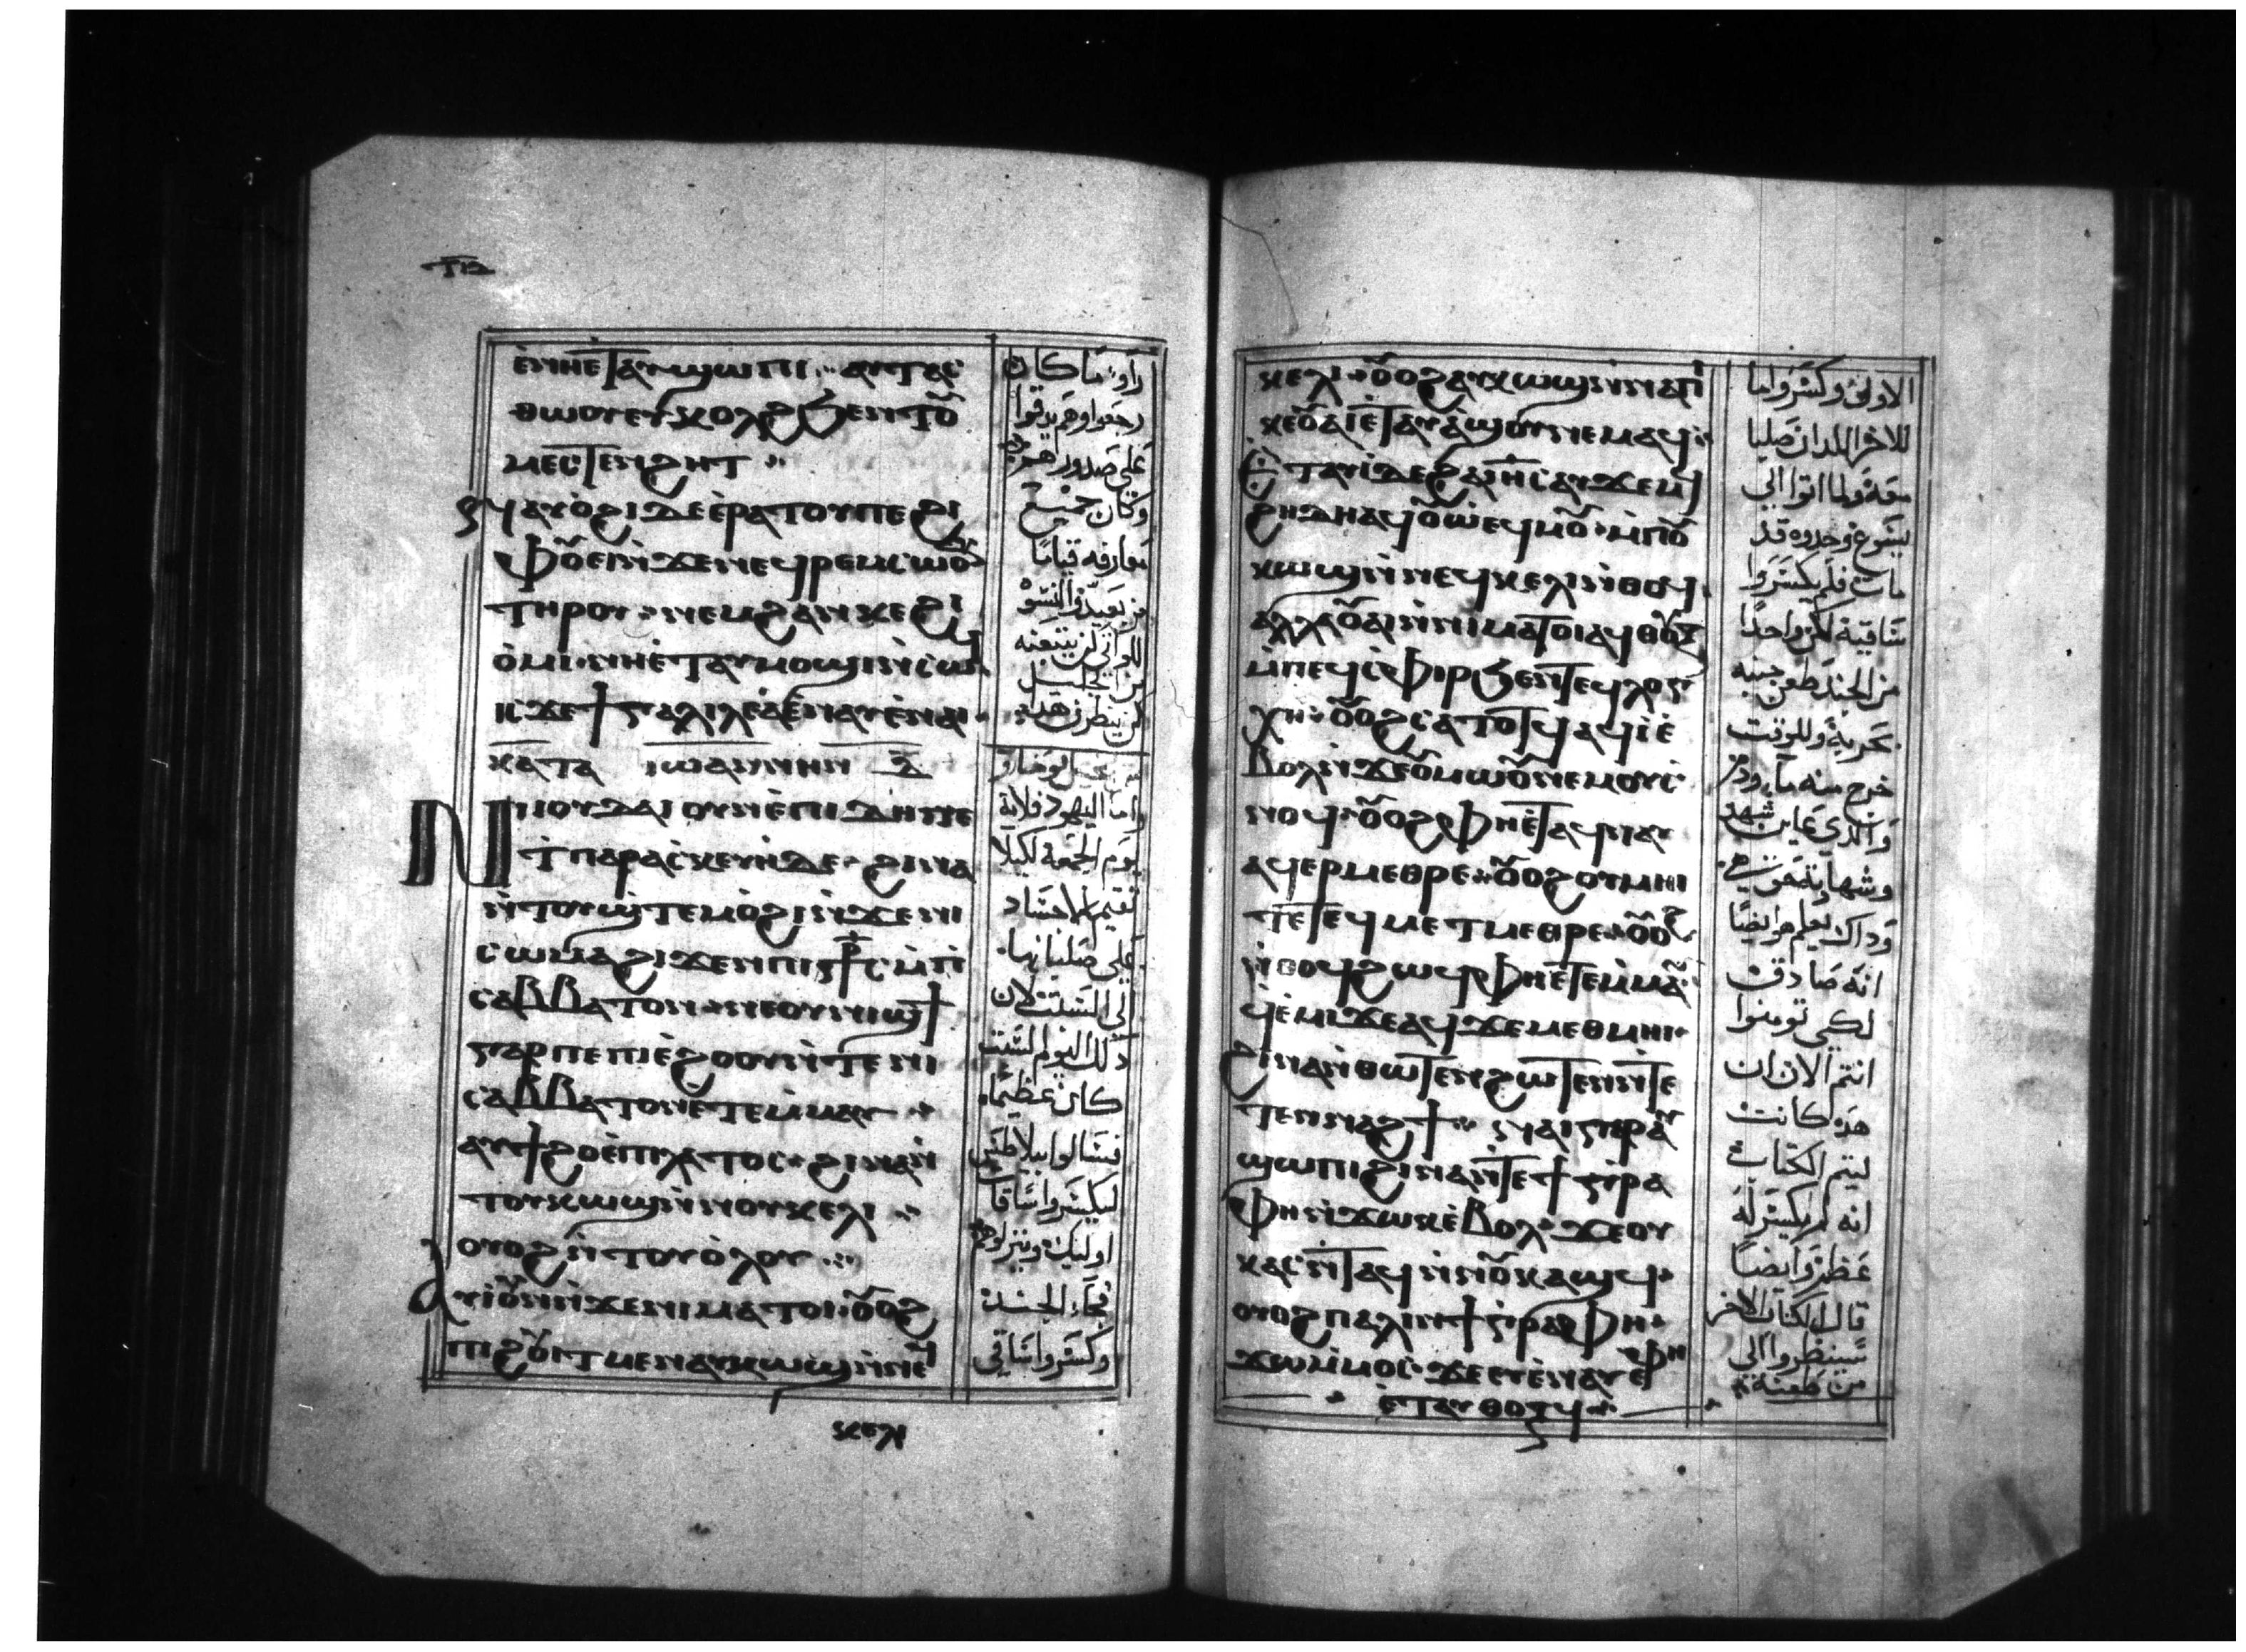 ⲧⲡⲃ
ⲉ̀ⲛⲏⲉ̀ⲧⲁⲩϣⲱⲡⲓ ⁘ ⲁⲩⲧⲁⲥ
ⲑⲱⲟⲩⲉⲩⲕⲟⲗϩϧⲉⲛⲧⲟ︤ⲩ︥
ⲙⲉⲥⲧⲉⲛϩⲏⲧ ⁘
ⲛⲁⲩⲟ̀ϩⲓⲇⲉⲉ̀ⲣⲁⲧⲟⲩⲡⲉϩⲓ
ⲫⲟⲩⲉⲓⲛ̀ϫⲉⲛⲉϥⲣⲉⲙⲥⲱⲟⲩⲛ
ⲧⲏⲣⲟⲩ ⲛⲉⲙϩⲁⲛⲕⲉϩⲓ
ⲟ̀ⲙⲓ ⲛⲏⲉ̀ⲧⲁⲩⲙⲟϣⲓⲛ̀ⲥⲱϥ
ⲓⲥϫⲉϯⲅⲁⲗⲓⲗⲉⲁ̀ⲉⲩⲛⲁⲩⲉ̀ⲛⲁⲓ
ⲕⲁⲧⲁ ⲓⲱⲁⲛⲛⲏⲛ
ⲛⲓⲓⲟⲩⲇⲁⲓ ⲟⲩⲛ ⲉ̀ⲡⲓⲇⲏ ⲛⲉ
ϯⲡⲁⲣⲁⲥⲕⲉⲩⲏ̀ⲧⲉ ϩⲓⲛⲁ
ⲛ̀ⲧⲟⲩϣⲧⲉⲙⲟ̀ϩⲓⲛ̀ϫⲉⲛⲓ
ⲥⲱⲙⲁϩⲓϫⲉⲛⲡⲓⲥ⳨ⲥⲙ̀ⲡⲓ
ⲥⲁⲃⲃⲁⲧⲟⲛ ⲛⲉⲟⲩⲛⲓϣϯ
ⲅⲁⲣⲡⲉⲡⲓⲉ̀ϩⲟⲟⲩⲛ̀ⲧⲉⲛⲓ
ⲥⲁⲃⲃⲁⲧⲟⲛⲉⲧⲉⲙ̀ⲙⲁⲩ ⁘
ⲁⲩϯϩⲟⲉ̀ⲡⲓⲗⲁⲧⲟⲥ ϩⲓⲛⲁⲛ̀
ⲧⲟⲩⲕⲱϣⲛ̀ⲛⲟⲩⲕⲉⲗⲓ ⁘
ⲟⲩⲟϩⲛ̀ⲧⲟⲩⲟ̀ⲗⲟⲩ ⁘
ⲁⲩⲓ̀ⲟⲩⲛⲛ̀ϫⲉⲛⲓⲙⲁⲧⲟⲓ ⲟⲩⲟϩ
ⲡⲓϩⲟⲩⲓⲧⲙⲉⲛⲁⲩⲕⲱϣⲛ̀ⲛⲉϥ
ⲕⲉⲗⲓ
راوا ما كان
رجعوا وهم يدقوا
على صدورهم
وكان جميع
معارفه قياما
من بعيد والنسوة
اللواتي كن يتبعنه
من الجليل
كن ينظرن هذه
واما اليهود فلانه
يوم الجمعة لكيلا
تقيم الاجساد
على صلبانها
الى السبت لان
ذلك اليوم السبت
كان عظيما
فسالوا بيلاطس
ليكسروا ساقات
اوليك وينزلوهم
فجاء الجند
وكسروا ساقي
ⲕⲉⲗⲓ ⲟⲩⲟϩⲁⲩⲕⲱϣⲛ̀ⲛⲁⲡⲓ
ⲕⲉⲟⲩⲁⲓⲉ̀ⲧⲁⲩⲁ̀ϣⲟⲩⲛⲉⲙⲁϥ
ⲉ̀ⲧⲁⲩⲓ̀ⲇⲉϩⲁⲓⲏⲥⲁⲩϫⲉⲙϥ
ϩⲏⲇⲏⲁϥⲟⲩⲱⲉϥⲙⲟⲩ ⲙ̀ⲡⲟⲩ
ⲕⲱϣⲛ̀ⲛⲉϥⲕⲉⲗⲓⲛ̀ⲑⲟϥ
ⲁⲗⲗⲁⲟⲩⲁⲓⲛ̀ⲛⲓⲙⲁⲧⲟⲓⲁϥⲑⲟⲩⲝ
ⲙ̀ⲡⲉϥⲥ̀ⲫⲓⲣϧⲉⲛⲧⲉϥⲗⲟⲅ
ⲭⲏ ⲟⲩⲟϩⲥⲁⲧⲟⲧϥⲁϥⲓ̀ⲉ̀
ⲃⲟⲗⲛ̀ϫⲉⲟⲩⲙⲱⲟⲩⲛⲉⲙⲟⲩⲥ
ⲛⲟϥ ⲟⲩⲟϩⲫⲏⲉ̀ⲧⲁϥⲛⲁⲩ
ⲁϥⲉⲣⲙⲉⲑⲣⲉ ⲟⲩⲟϩⲟⲩⲙⲏⲓ
ⲧⲉⲧⲉϥⲙⲉⲧⲙⲉⲑⲣⲉ ⲟⲩⲟϩ
ⲛ̀ⲑⲟϥϩⲱϥⲫⲏⲉⲧⲉⲙ̀ⲙⲁⲩ
ϥⲉ̀ⲙⲓϫⲉⲁϥϫⲉⲙⲉⲑⲙⲏⲓ
ϩⲓⲛⲁⲛ̀ⲑⲱⲧⲉⲛϩⲱⲧⲉⲛⲛ̀ⲧⲉ
ⲧⲉⲛⲛⲁϩϯ ⁘ ⲛⲁⲓⲅⲁⲣⲁⲩ
ϣⲱⲡⲓϩⲓⲛⲁⲛ̀ⲧⲉϯⲅⲣⲁ
ⲫⲏⲛ̀ϫⲱⲕⲉ̀ⲃⲟⲗ ϫⲉⲟⲩ
ⲕⲁⲥⲛ̀ⲧⲁϥⲛ̀ⲛⲟⲩⲕⲁϣϥ
ⲟⲩⲟϩⲡⲁⲗⲓⲛⲕⲉⲅⲣⲁⲫⲏ
ϫⲱⲙ̀ⲙⲟⲥ ϫⲉⲉⲩⲉ̀ⲛⲁⲩⲉ̀ⲫⲏ
ⲉ̀ⲧⲁⲩⲑⲟⲝϥ
الاول وكسروا ايضا
للاخر اللدان صلبا
معه ولما اتوا الى
يسوع وجدوه قد
مات فلم يكسروا
ساقيه لكن واحدا
من الجند طعن جنبه
بحربة وللوقت
خرج منه ماء ودم
والذي عاين شهد
وشهادته حق هي
وذاك يعلم هو ايضا
انه صادق
لكي تومنوا
انتم الان ان
هذه كانت
ليتم الكتاب
انه لم يكسر له
عظم وايضا
قال الكتاب الاخر
سينظروا الى
من طعنه